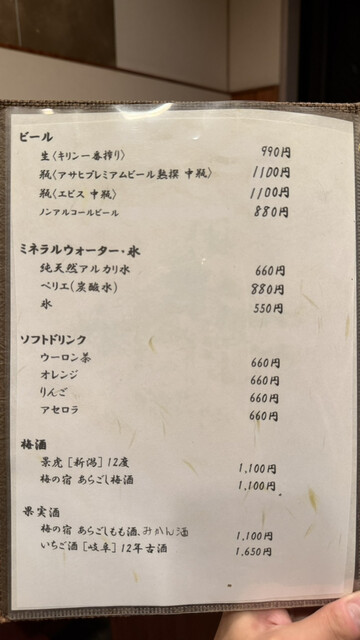 ビール
生〈キリン一番搾り〉 990円
瓶〈アサヒプレミアムビール熟撰 中瓶〉 1100円
瓶〈エビス 中瓶〉 1100円
ノンアルコールビール 880円
ミネラルウォーター・氷
純天然アルカリ水 660円
ペリエ(炭酸水) 880円
氷 550円
ソフトドリンク
ウーロン茶 660円
オレンジ 660円
りんご 660円
アセロラ 660円
梅酒
景虎[新潟]12度 1,100円
梅の宿 あらごし梅酒 1,100円
果実酒
梅の宿 あらごしもも酒、みかん酒 1,100円
いちご酒[岐阜]12年古酒 1,650円